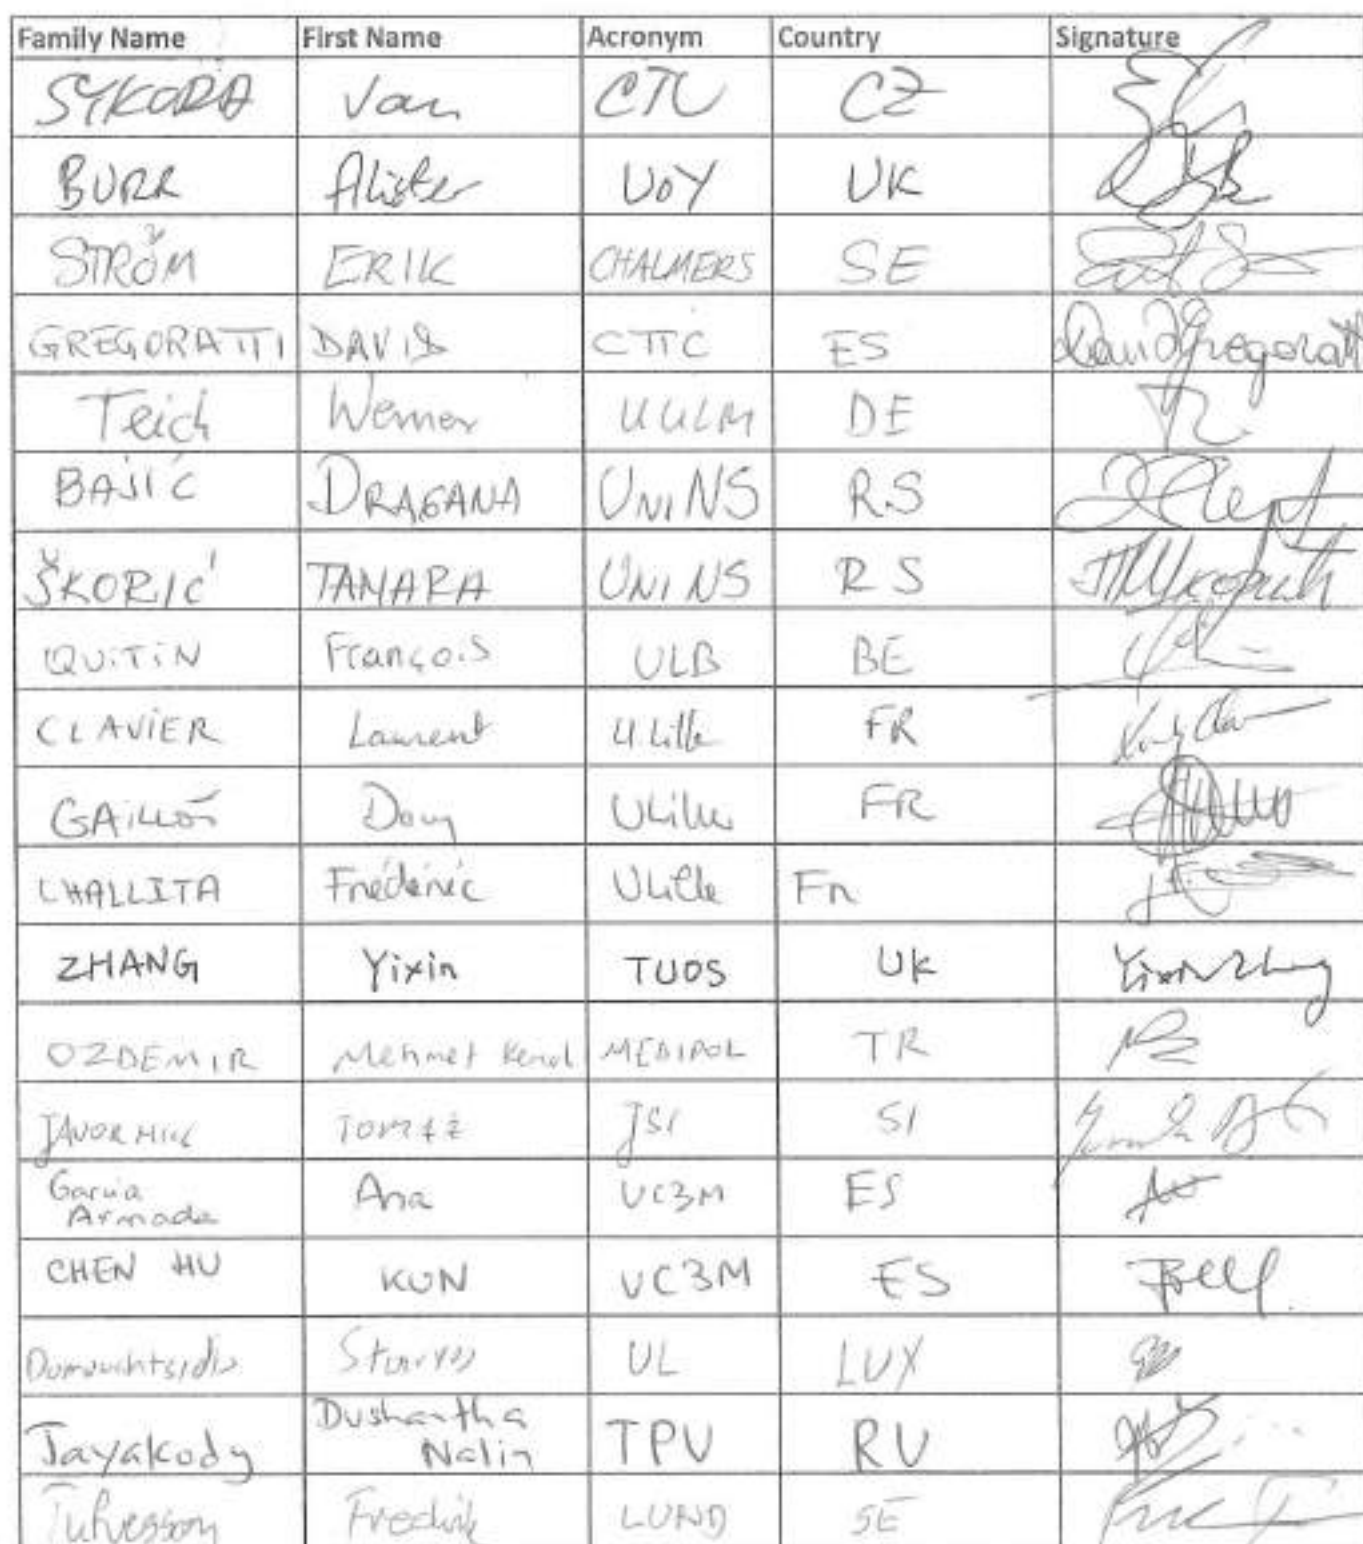 Family Name First Name Acronym Country Signature
SYKORA Jan CTU CZ
BURR Alister UoY UK
STRÖM ERIK CHALMERS SE
GREGORATTI DAVID CTTC ES David Gregoratti
Teich Werner UULM DE
BAJIĆ DRAGANA UNINS RS
ŠKORIĆ TAMARA UNINS RS
QUITIN François ULB BE
CLAVIER Laurent U.Lille FR
Ulille FR
CHALLITA Frédéric ULille Fr
ZHANG Yixin TUOS UK Yixin Zhang
OZDEMIR Mehmet Kemal MEDIPOL TR
JAVORNIK TOMAŽ JSI SI
Garcia
Armada Ana UC3M ES
CHEN HU KUN UC3M ES
UL LUX
Jayakody Dushantha
Nalin TPU RU
Tufvesson Fredrik LUND SE